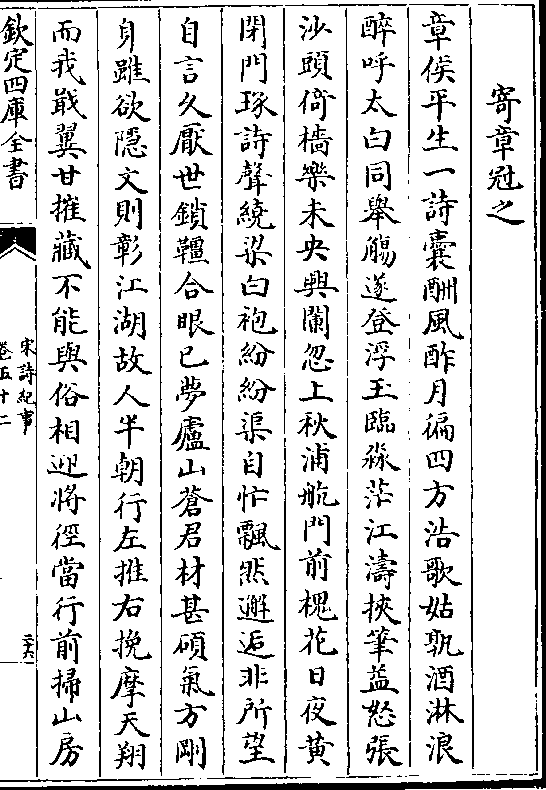 寄章冠之
章侯平生一詩囊酬風酢月徧四方浩歌姑孰酒淋浪
醉呼太白同舉觴遂登浮玉臨淼茫江濤挾筆益怒張
沙頭倚檣樂未央興闌忽上秋浦航門前槐花日夜黄
閉門琢詩聲繞梁白袍紛紛渠自忙飄然邂逅非所望
自言久厭世鎖韁合眼已夢廬山蒼君材甚碩氣方剛
身雖欲隱文則彰江湖故人半朝行左推右挽摩天翔
而我戢翼甘摧藏不能與俗相迎將徑當行前掃山房
欽定四庫全書
宋詩紀事
卷五十二